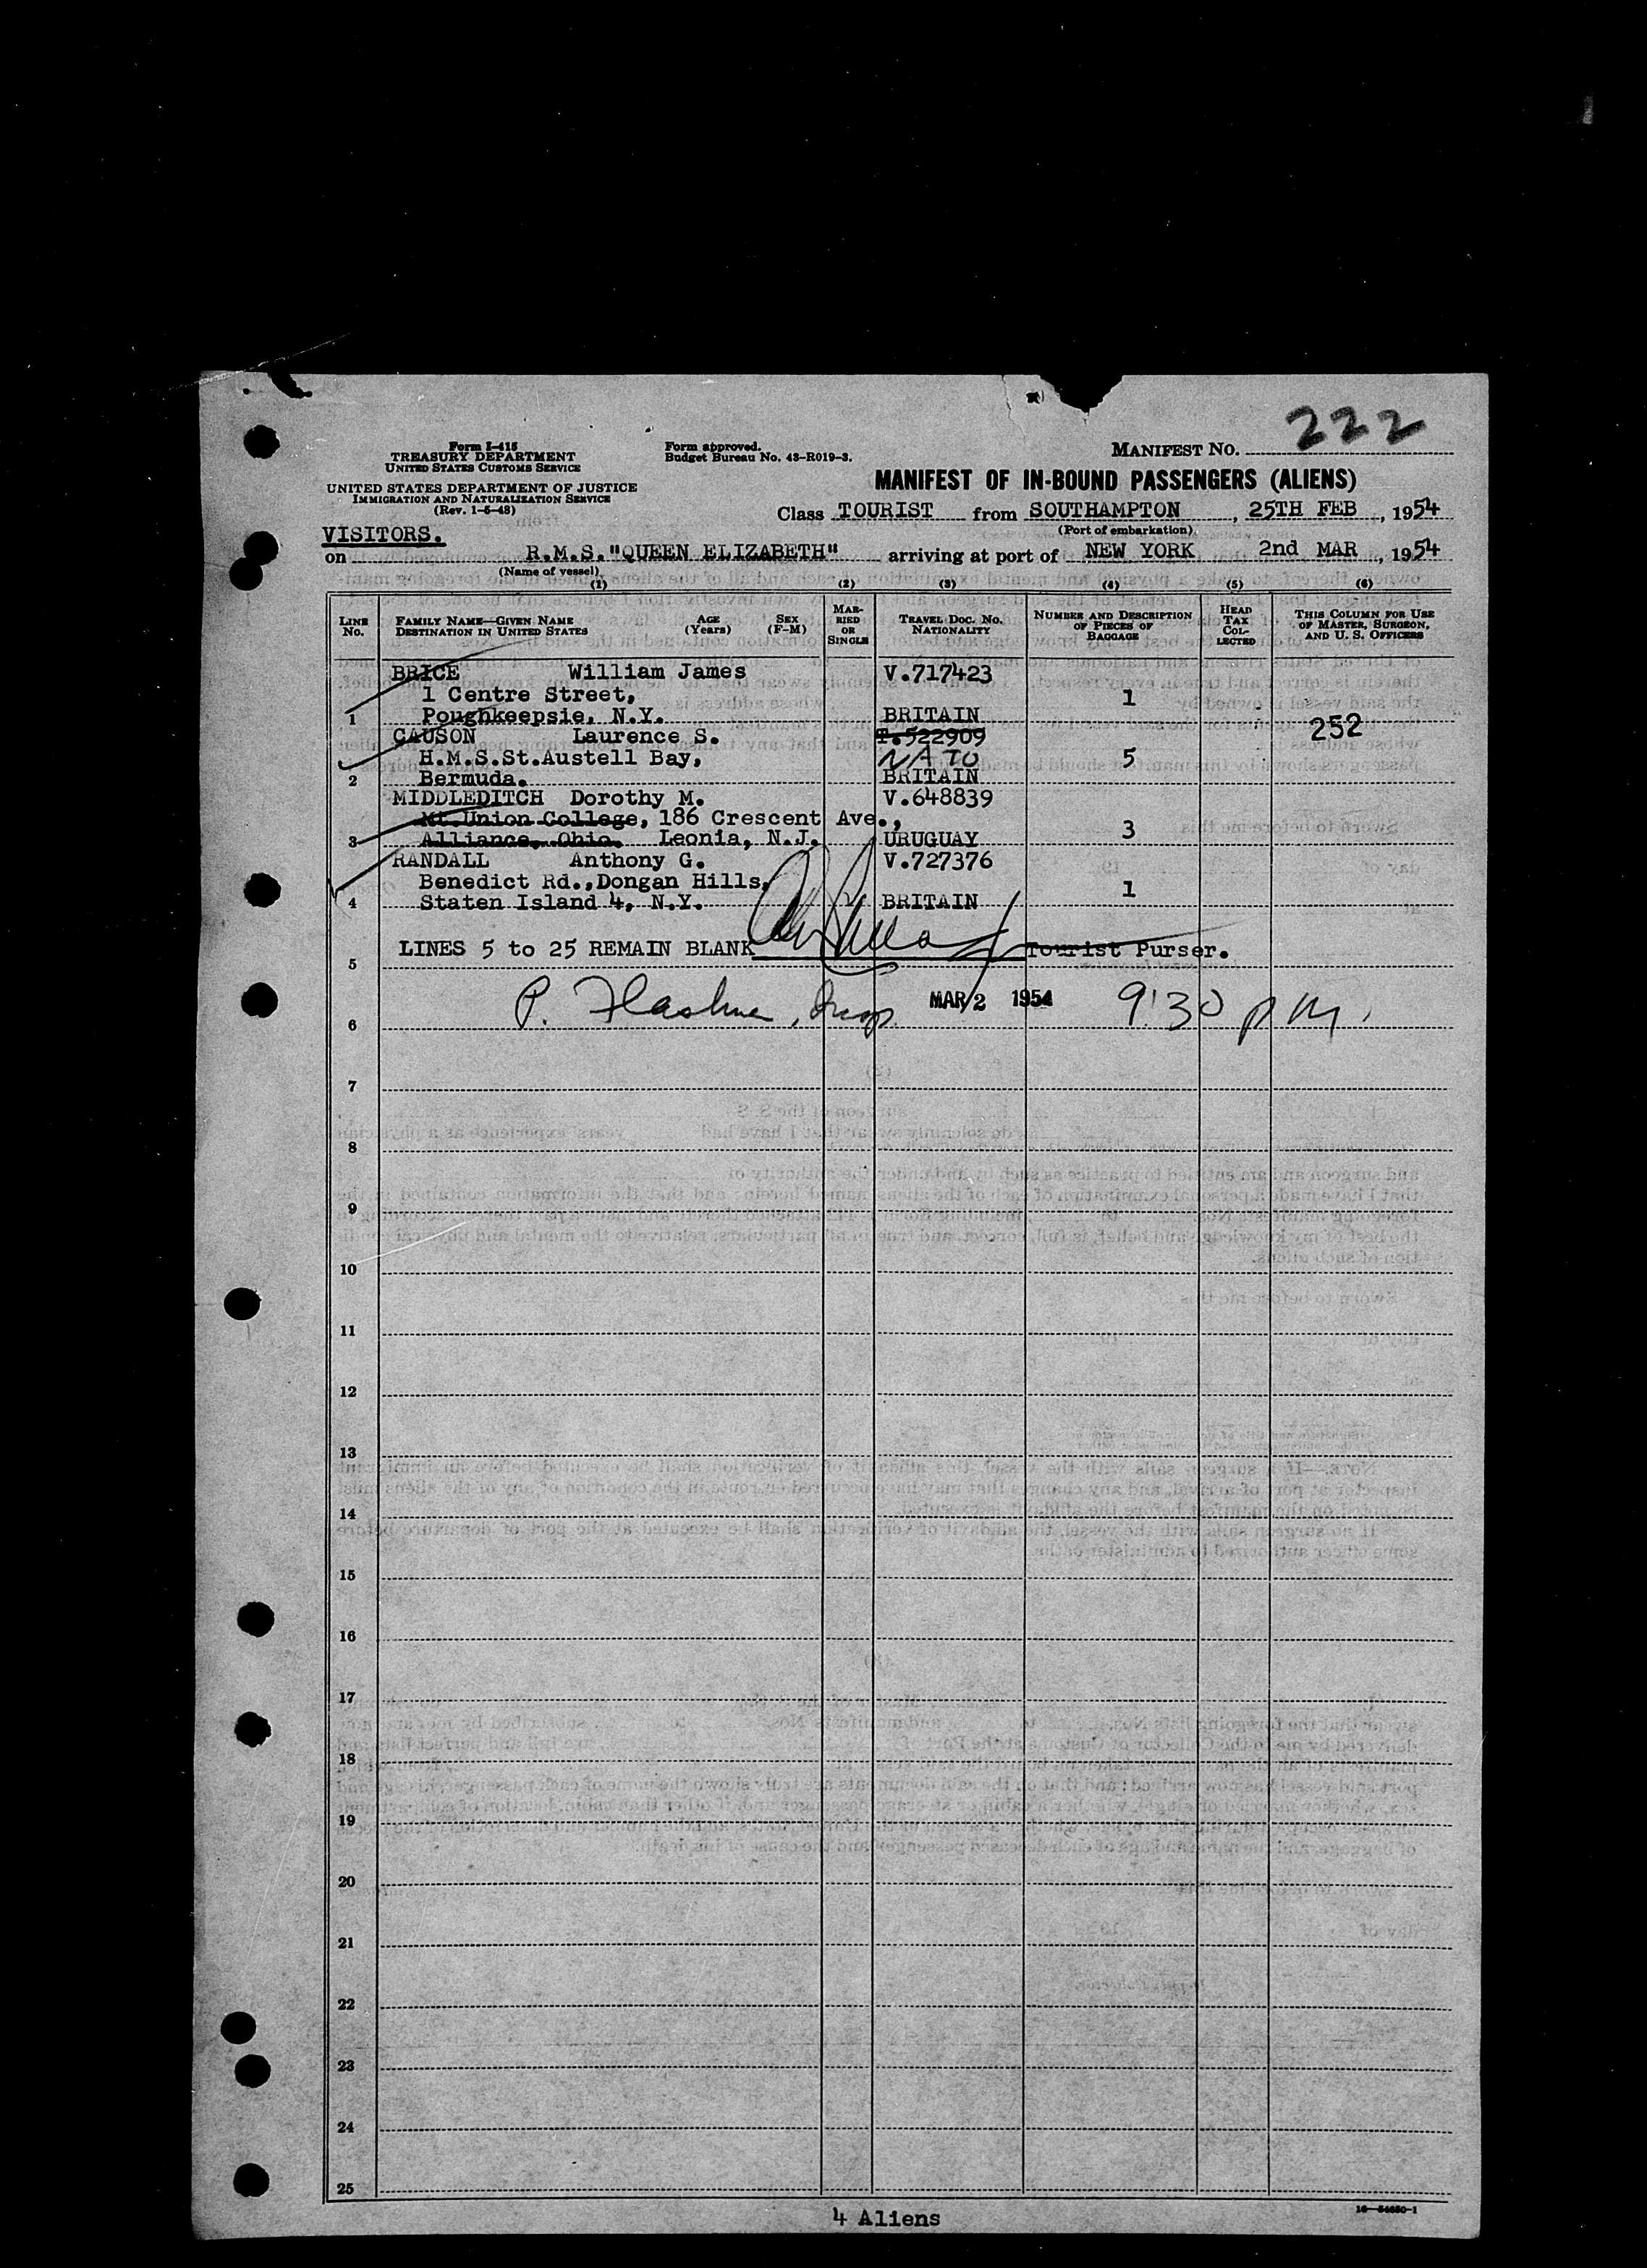 222
Form I-415
TREASURY DEPARTMENT
UNITED STATES CUSTOMS SERVICE
UNITED STATES DEPARTMENT OF JUSTICE
IMMIGRATION AND NATURALIZATION SERVICE
(Rev. 1-5-48)
Form approved.
Budget Bureau No. 43-R019-3.
MANIFEST NO.
MANIFEST OF IN-BOUND PASSENGERS (ALIENS)
Class TOURIST from SOUTHAMPTON, 25TH FEB, 1954
(Port of embarkation)
VISITORS.
on R.M.S."QUEEN ELIZABETH" arriving at port of NEW YORK 2nd MAR, 1954
(Name of vessel)
(1) (2) (3) (4) (5) (6)
LINE No.
FAMILY NAME—GIVEN NAME
DESTINATION IN UNITED STATES
AGE (Years)
SEX (F-M)
MARRIED OR SINGLE
TRAVEL DOC. NO.
NATIONALITY
NUMBER AND DESCRIPTION OF PIECES OF BAGGAGE
HEAD TAX COLLECTED
THIS COLUMN FOR USE OF MASTER, SURGEON, AND U. S. OFFICERS
BRICE William James V.717423
1 Centre Street, 1
1 Poughkeepsie, N.Y. BRITAIN
252
CAUSON Laurence S. T.522909
H.M.S.St.Austell Bay, NATO 5
2 Bermuda. BRITAIN
MIDDLEDITCH Dorothy M. V.648839
Mt.Union College, 186 Crescent Ave.,
3 Alliance, Ohio. Leonia, N.J. URUGUAY 3
RANDALL Anthony G. V.727376
Benedict Rd.,Dongan Hills, 1
4 Staten Island 4, N.Y. BRITAIN
LINES 5 to 25 REMAIN BLANK Tourist Purser.
5
P. MAR 2 1954 9:30 p.m.
6
7
8
9
10
11
12
13
14
15
16
17
18
19
20
21
22
23
24
25
4 Aliens